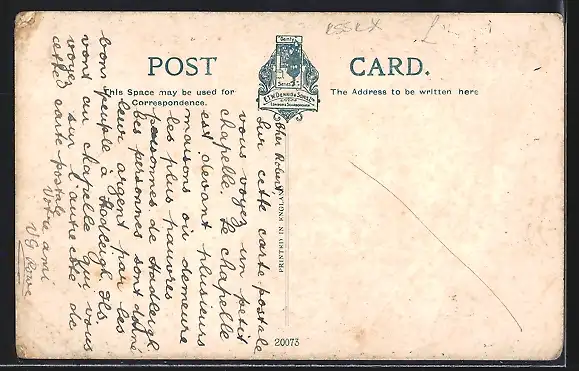 Essex
POST CARD.
This Space may be used for
Correspondence.
The Address to be written here
E.T.W. DENNIS & SONS LTD
LONDON & SCARBOROUGH
PRINTED IN ENGLAND
20073
Cher Robert
Sur cette carte-postale
vous voyez un petit
chapelle. Le chapelle
est devant plusieurs
maisons où demeure
les plus pauvres
personnes de Hadleigh
Des personnes sont donné
leur argent par les
bons peuple à Hadleigh. Ils
vont au chapelle qui vous
voyez sur l'autre côté de
cette carte-postale
Votre ami
V.G. Rowe